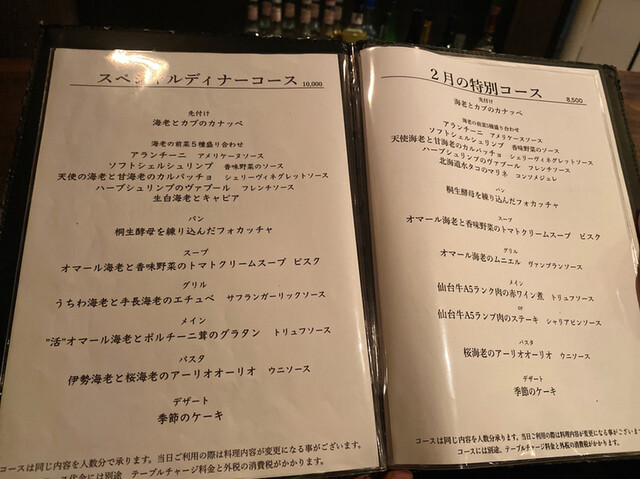 スペシャルディナーコース 10,000
先付け
海老とカブのカナッペ
海老の前菜5種盛り合わせ
アランチーニ アメリケーヌソース
ソフトシェルシュリンプ 香味野菜のソース
天使の海老と甘海老のカルパッチョ シェリーヴィネグレットソース
ハーブシュリンプのヴァプール フレンチソース
生白海老とキャビア
パン
桐生酵母を練り込んだフォカッチャ
スープ
オマール海老と香味野菜のトマトクリームスープ ビスク
グリル
うちわ海老と手長海老のエチュベ サフランガーリックソース
メイン
"活"オマール海老とポルチーニ茸のグラタン トリュフソース
パスタ
伊勢海老と桜海老のアーリオオーリオ ウニソース
デザート
季節のケーキ
コースは同じ内容を人数分で承ります。当日ご利用の際は料理内容が変更になる事がございます。
コース代金には別途 テーブルチャージ料金と外税の消費税がかかります。
2月の特別コース 8,500
先付け
海老とカブのカナッペ
海老の前菜5種盛り合わせ
アランチーニ アメリケーヌソース
ソフトシェルシュリンプ 香味野菜のソース
天使海老と甘海老のカルパッチョ シェリーヴィネグレットソース
ハーブシュリンプのヴァプール フレンチソース
北海道水タコのマリネ コンソメジュレ
パン
桐生酵母を練り込んだフォカッチャ
スープ
オマール海老と香味野菜のトマトクリームスープ ビスク
グリル
オマール海老のムニエル ヴァンブランソース
メイン
仙台牛A5ランク肉の赤ワイン煮 トリュフソース
or
仙台牛A5ランプ肉のステーキ シャリアピンソース
パスタ
桜海老のアーリオオーリオ ウニソース
デザート
季節のケーキ
コースは同じ内容を人数分で承ります。当日ご利用の際は料理内容が変更になる事がございます。
コースには別途、テーブルチャージ料金と外税の消費税がかかります。